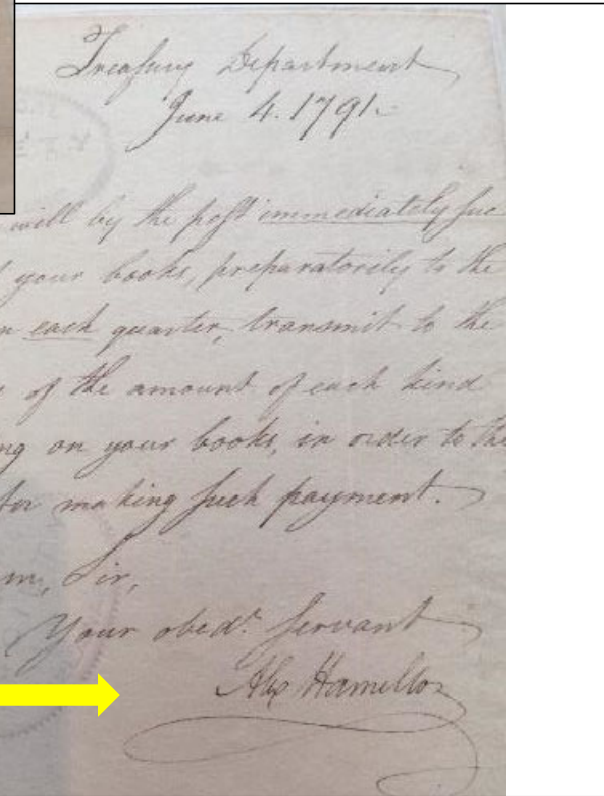 Treasury Department
June 4. 1791.
will by the post immediately suc
your books, preparatorily to the
each quarter, transmit to the
of the amount of each kind
ng on your books, in order to the
for making such payment.
Sir,
Your obedt. Servant
Alex Hamilton